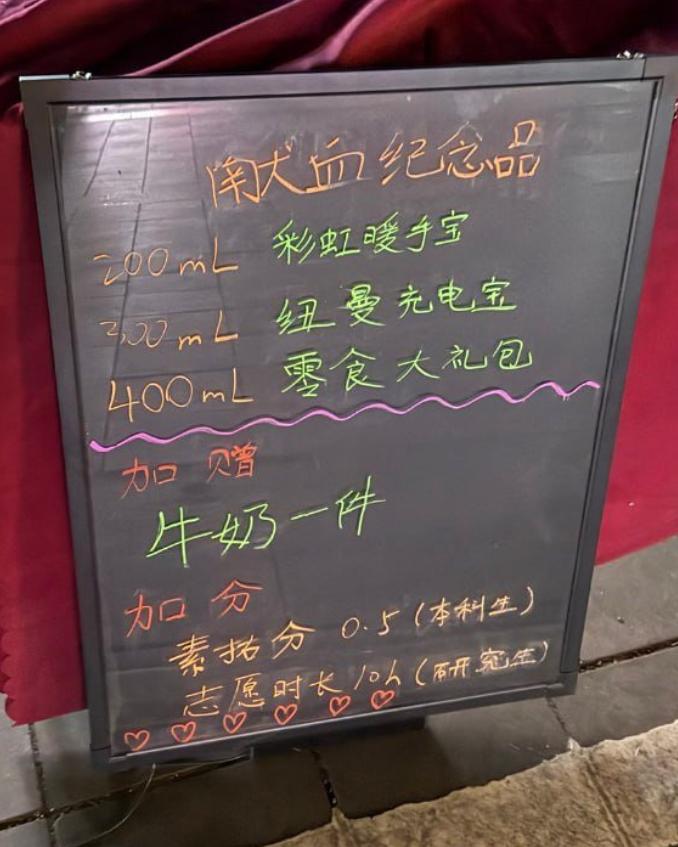 献血纪念品
200mL 彩虹暖手宝
300mL 纽曼充电宝
400mL 零食大礼包
加赠
牛奶一件
加分
素拓分 0.5(本科生)
志愿时长 10h(研究生)